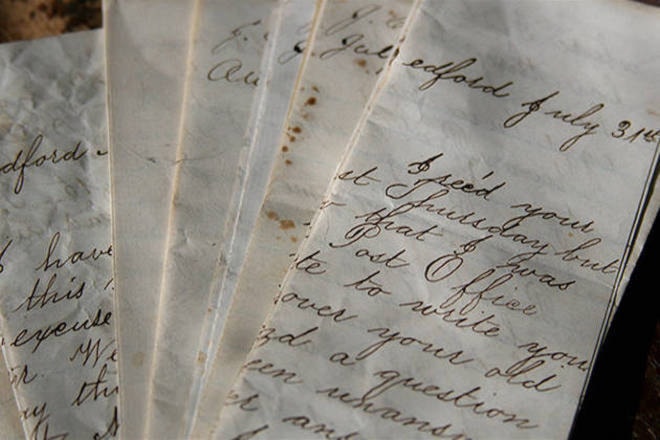 dford
I have
this
excuse
r. We
Au
Jul
edford July 31st
I rec'd your
st Thursday but
that I was
Post Office
te to write you
over your old
a question
een unansw